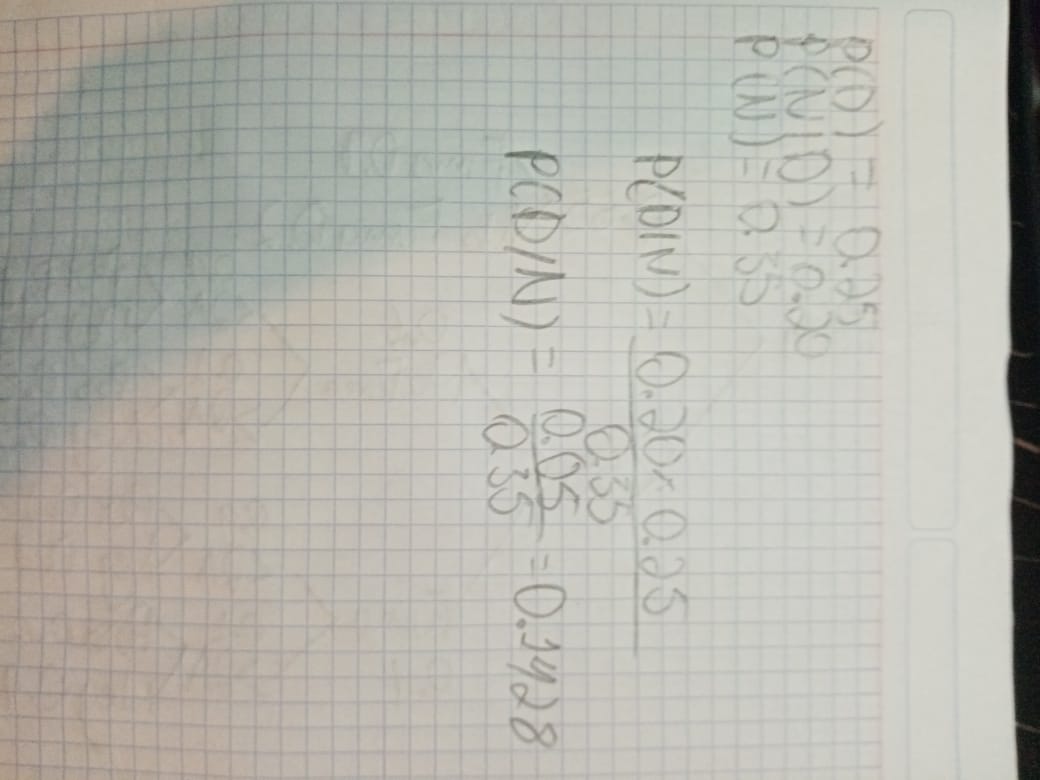 P(D) = 0.25
P(N|D) = 0.20
P(N) = 0.35
P(D|N) = 0.20 × 0.25
0.35
P(D/N) = 0.05 = 0.1428
0.35